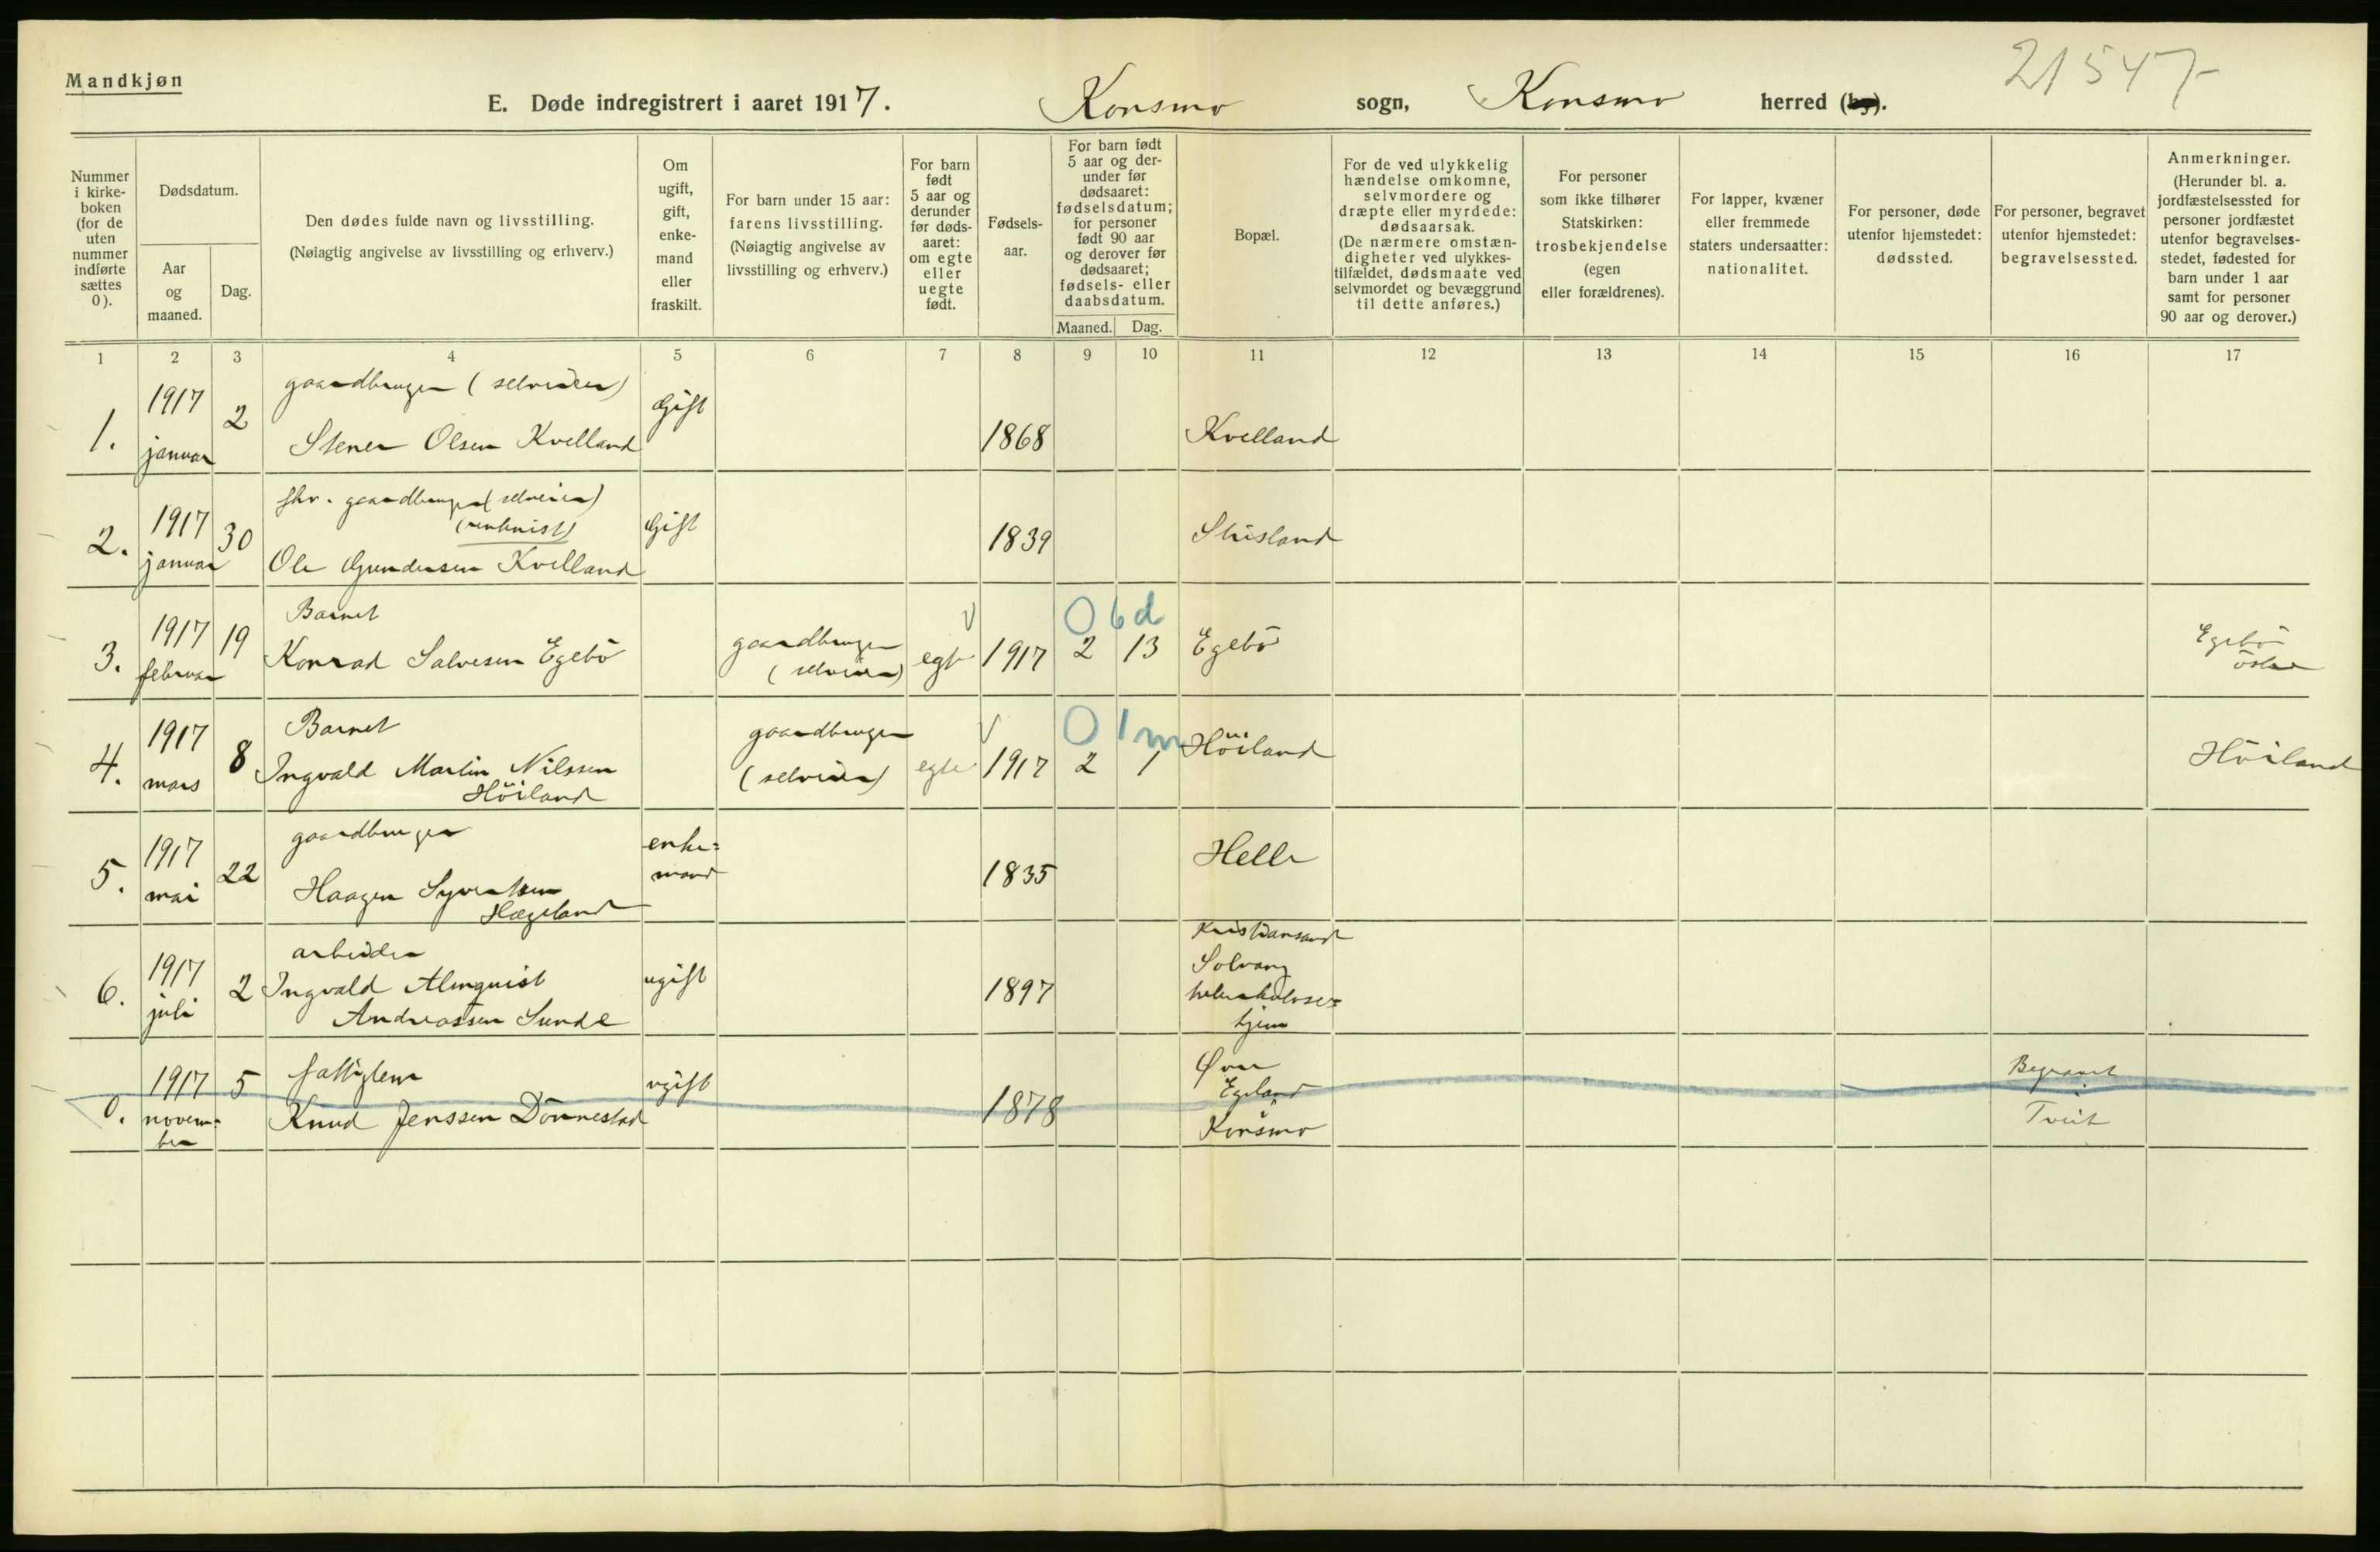 Mandkjøn
21547
E. Døde indregistrert i aaret 1917. Konsmo sogn, Konsmo herred (by).
Nummer i kirke- boken (for de uten nummer indførte sættes 0).
Dødsdatum.
Aar og maaned.
Dag.
Den dødes fulde navn og livsstilling.
(Nøiagtig angivelse av livsstilling og erhverv.)
Om ugift, gift, enke- mand eller fraskilt.
For barn under 15 aar: farens livsstilling. (Nøiagtig angivelse av livsstilling og erhverv.)
For barn født 5 aar og derunder før døds- aaret: om egte eller uegte født.
Fødsels- aar.
For barn født 5 aar og der- under før dødsaaret: fødselsdatum; for personer født 90 aar og derover før dødsaaret; fødsels- eller daabsdatum.
Maaned. Dag.
Bopæl.
For de ved ulykkelig hændelse omkomne, selvmordere og dræpte eller myrdede: dødsaarsak. (De nærmere omstæn- digheter ved ulykkes- tilfældet, dødsmaate ved selvmordet og bevæggrund til dette anføres.)
For personer som ikke tilhører Statskirken: trosbekjendelse (egen eller forældrenes).
For lapper, kvæner eller fremmede staters undersaatter: nationalitet.
For personer, døde utenfor hjemstedet: dødssted.
For personer, begravet utenfor hjemstedet: begravelsessted.
Anmerkninger. (Herunder bl. a. jordfæstelsessted for personer jordfæstet utenfor begravelses- stedet, fødested for barn under 1 aar samt for personer 90 aar og derover.)
1 2 3 4 5 6 7 8 9 10 11 12 13 14 15 16 17
gaardbruger (selveier)
1. 1917 januar 2 Stener Olsen Kvelland Gift 1868 Kvelland
fhv. gaardbruger (selveier)
2. 1917 januar 30 Ole Gundersen Kvelland Gift 1839
Barnet 0 6d
3. 1917 februar 19 Konrad Salvesen Egebö gaardbruger (selveier) egte 1917 2 13 Egebö Egebö östre
Barnet 0 1m
4. 1917 mars 8 Ingvald Martin Nilssen Höiland gaardbruger (selveier) egte 1917 2 1 Höiland Höiland
gaardbruger
5. 1917 mai 22 Haagen Syvertsen Hægeland enke= mand 1835 Helle
arbeider
6. 1917 juli 2 Ingvald Almquist Andreassen Sunde ugift 1897 Kristiansand Solvang tuberkulose= hjem
fattiglem
0. 1917 novem= ber 5 Knud Jenssen Dönnestad ugift 1878 Øvre Egeland Konsmo Begravet i Tveit